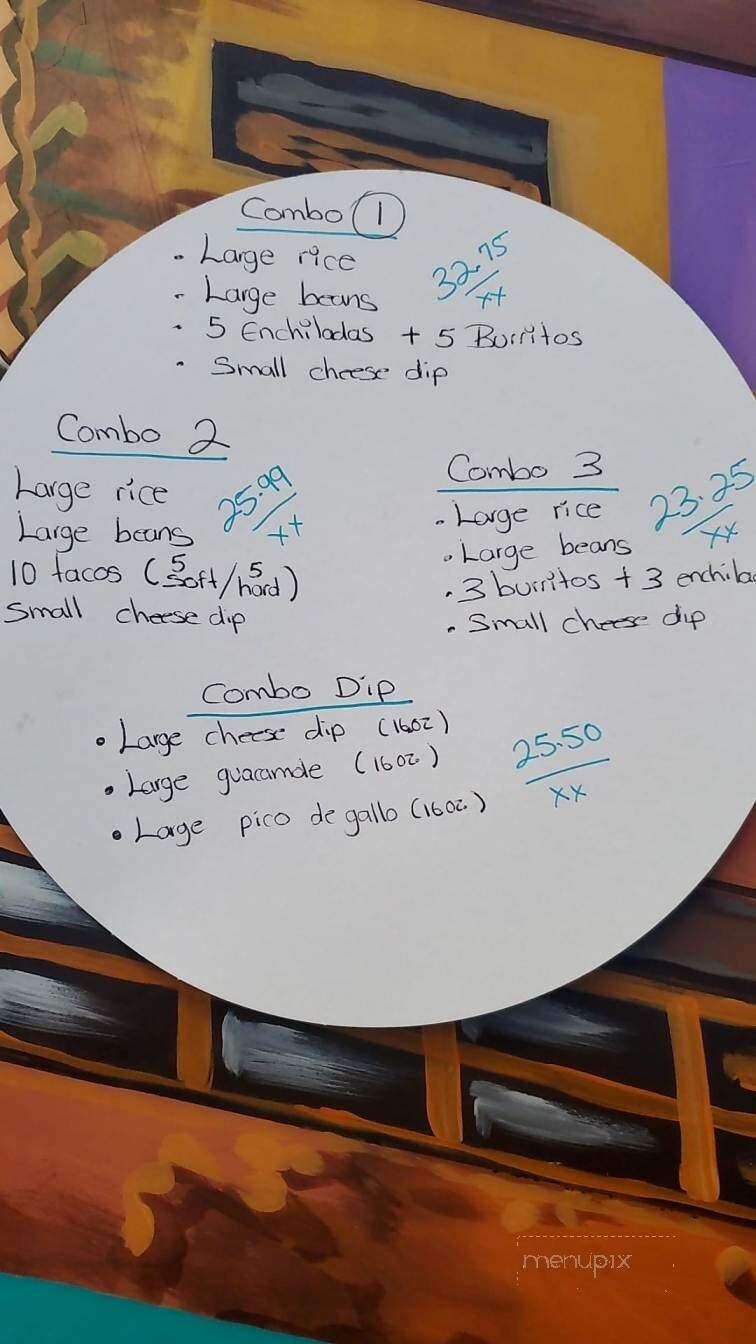 Combo 1
• Large rice
32.75/xx
• Large beans
• 5 Enchiladas + 5 Burritos
• Small cheese dip
Combo 2
Large rice
25.99/xx
Large beans
10 tacos (5 soft/5 hard)
Small cheese dip
Combo 3
• Large rice
23.25/xx
• Large beans
• 3 burritos + 3 enchila
• Small cheese dip
Combo Dip
• Large cheese dip (16oz)
• Large guacamole (16oz.)
• Large pico de gallo (16oz.)
25.50
xx
menupix